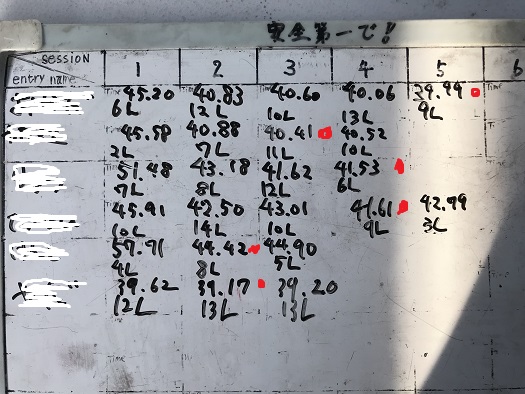 安全第一で!!
session
entry name
1 2 3 4 5 6
45.20 40.83 40.60 40.06 39.94
6L 12L 10L 13L 9L
45.58 40.88 40.41 40.52
2L 7L 11L 10L
51.48 43.18 41.62 41.53
7L 8L 12L 6L
45.91 42.50 43.01 41.61 42.99
10L 14L 10L 9L 3L
57.71 44.42 44.90
4L 8L 5L
39.62 39.17 39.20
12L 13L 13L